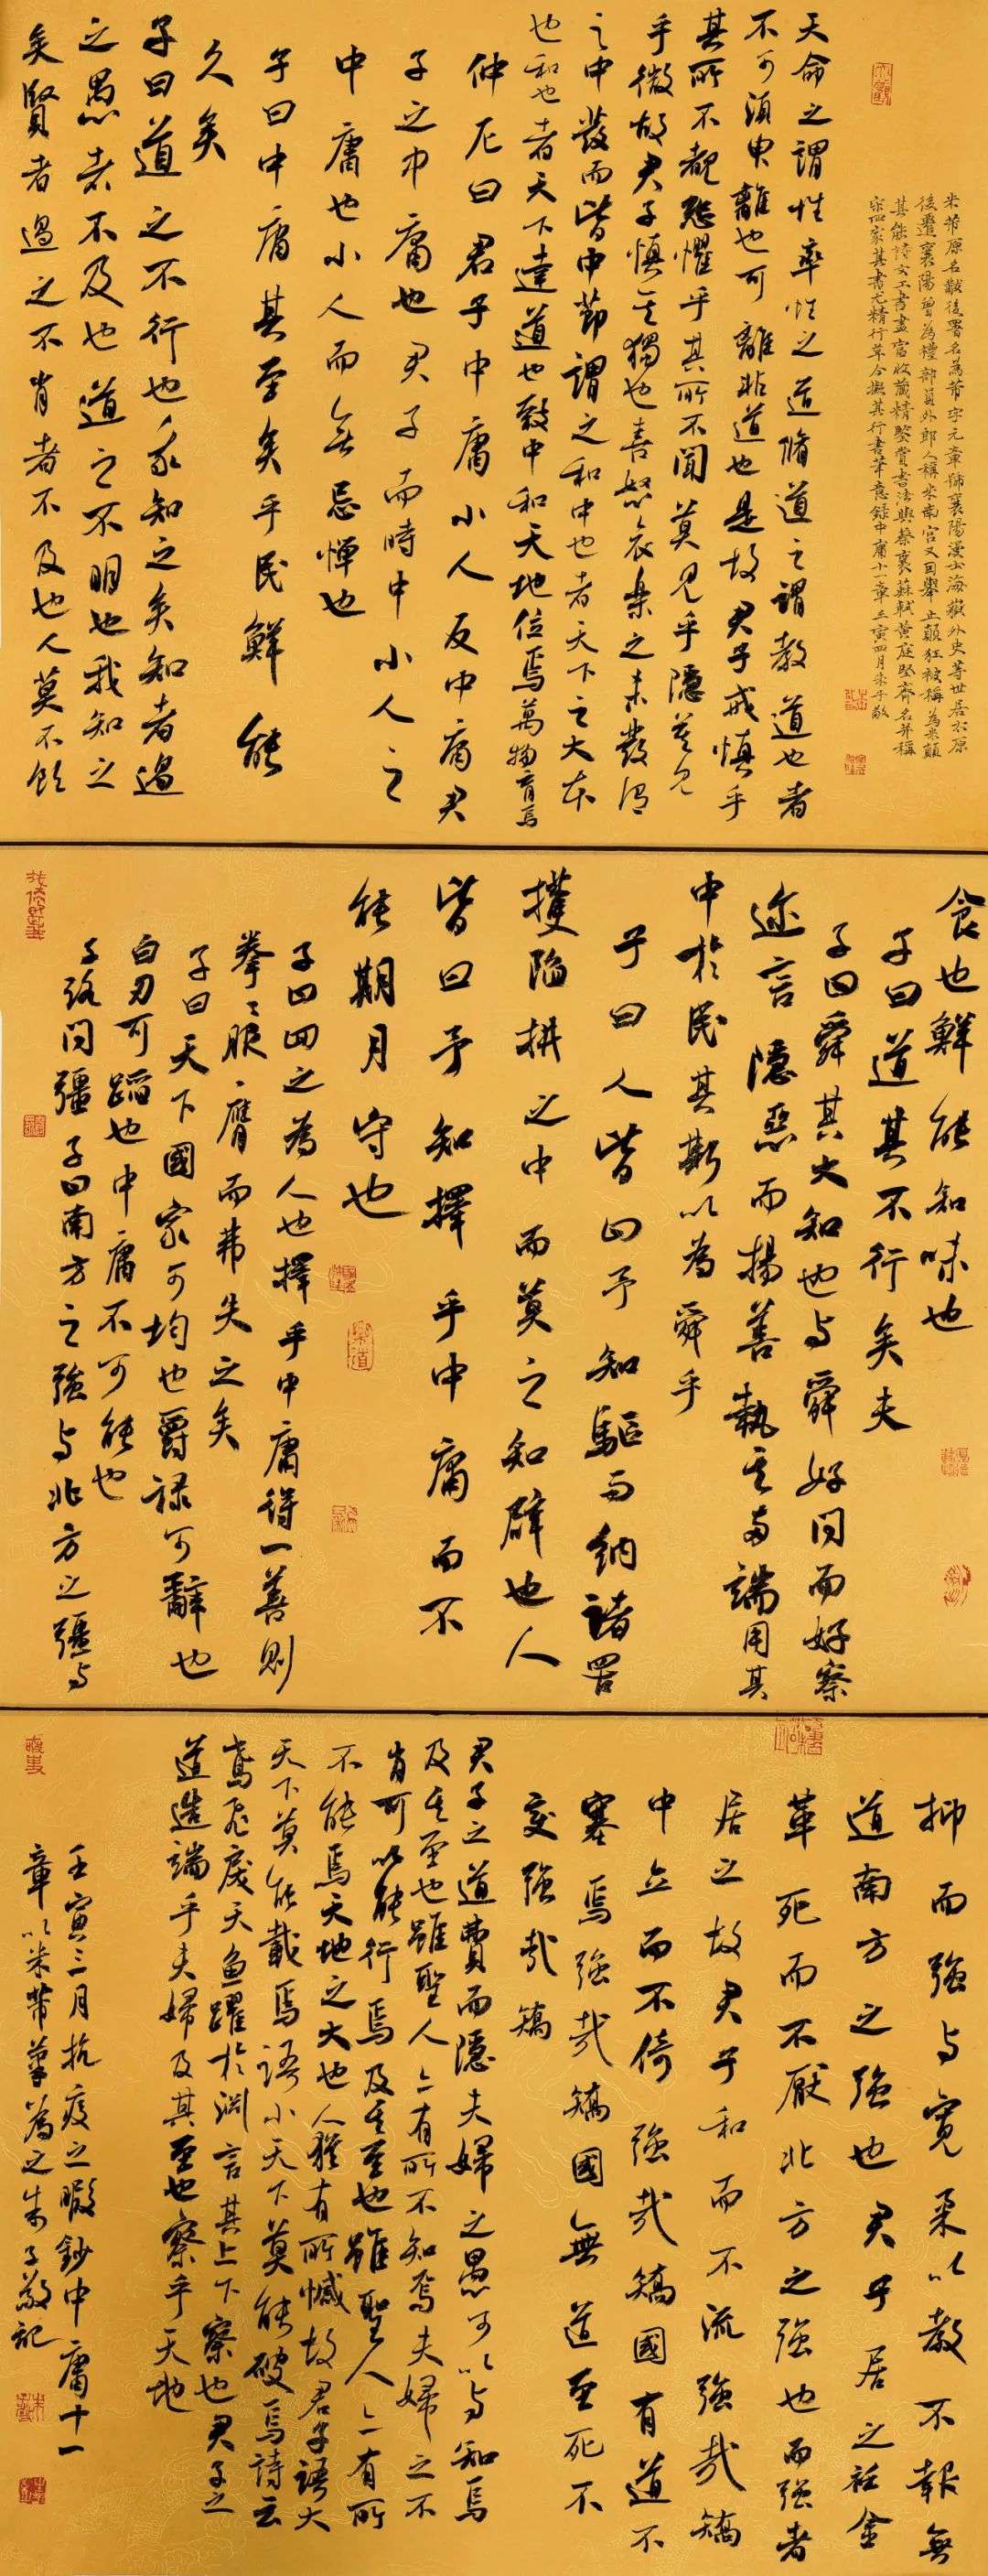 米芾原名黻後署名為芾字元章號襄陽漫士海嶽外史等世居太原
後遷襄陽曾為禮部員外郎人稱米南宮又因舉止顛狂被稱為米顛
其能詩文工書畫富收藏精鑒賞書法與蔡襄蘇軾黃庭堅齊名並稱
宋四家其書尤精行草今擬其行書筆意錄中庸十一章壬寅四月朱子敬
天命之謂性率性之道脩道之謂教道也者
不可須臾離也可離非道也是故君子戒慎乎
其所不覩恐懼乎其所不聞莫見乎隱莫見
乎微故君子慎其獨也喜怒哀樂之未發謂
之中發而皆中節謂之和中也者天下之大本
也和也者天下達道也致中和天地位焉萬物育焉
仲尼曰君子中庸小人反中庸君
子之中庸也君子而時中小人之
中庸也小人而無忌憚也
子曰中庸其至矣乎民鮮能
久矣
子曰道之不行也我知之矣知者過
之愚者不及也道之不明也我知之
矣賢者過之不肖者不及也人莫不飲
食也鮮能知味也
子曰道其不行矣夫
子曰舜其大知也与舜好问而好察
迩言隱惡而揚善執其兩端用其
中於民其斯以為舜乎
子曰人皆曰予知驅而納諸罟
擭陷穽之中而莫之知辟也人
皆曰予知擇乎中庸而不
能期月守也
子曰回之為人也擇乎中庸得一善則
拳拳服膺而弗失之矣
子曰天下國家可均也爵祿可辭也
白刃可蹈也中庸不可能也
子路问彊子曰南方之強与北方之彊与
抑而強与寬柔以教不報無
道南方之強也君子居之衽金
革死而不厭北方之強也而強者
居之故君子和而不流強哉矯
中立而不倚強哉矯國有道不
塞焉強哉矯國無道至死不
变強哉矯
君子之道費而隱夫婦之愚可以与知焉
及其至也雖聖人亦有所不知焉夫婦之不
肖可以能行焉及其至也雖聖人亦有所
不能焉天地之大也人猶有所憾故君子語大
天下莫能載焉語小天下莫能破焉詩云
鳶飛戾天魚躍於淵言其上下察也君子之
道造端乎夫婦及其至也察乎天地
壬寅三月抗疫之暇鈔中庸十一
章以米芾筆為之朱子敬記
樂道